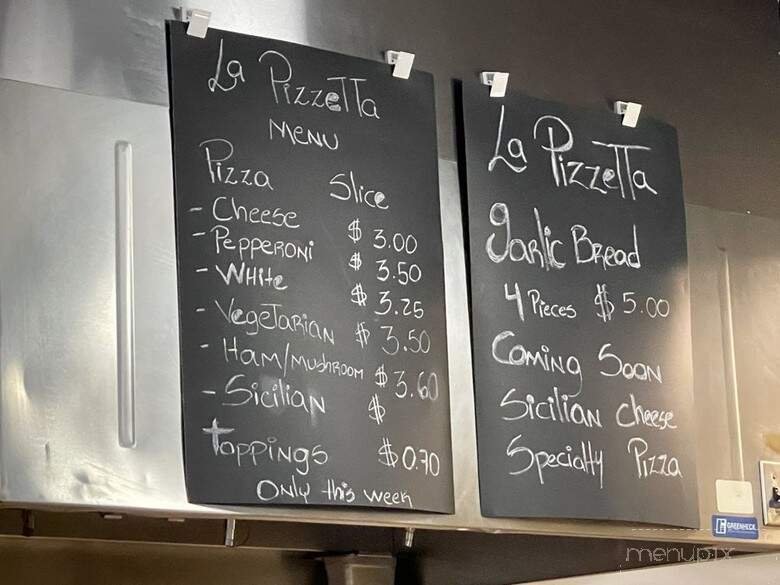 La Pizzetta
MENU
Pizza Slice
- Cheese $ 3.00
- Pepperoni $ 3.50
- White $ 3.25
- Vegetarian $ 3.50
- Ham/Mushroom $ 3.60
- Sicilian $
toppings $0.70
Only this week
La Pizzetta
garlic Bread
4 Pieces $5.00
Coming Soon
Sicilian cheese
Specialty Pizza
GREENHECK
menupix